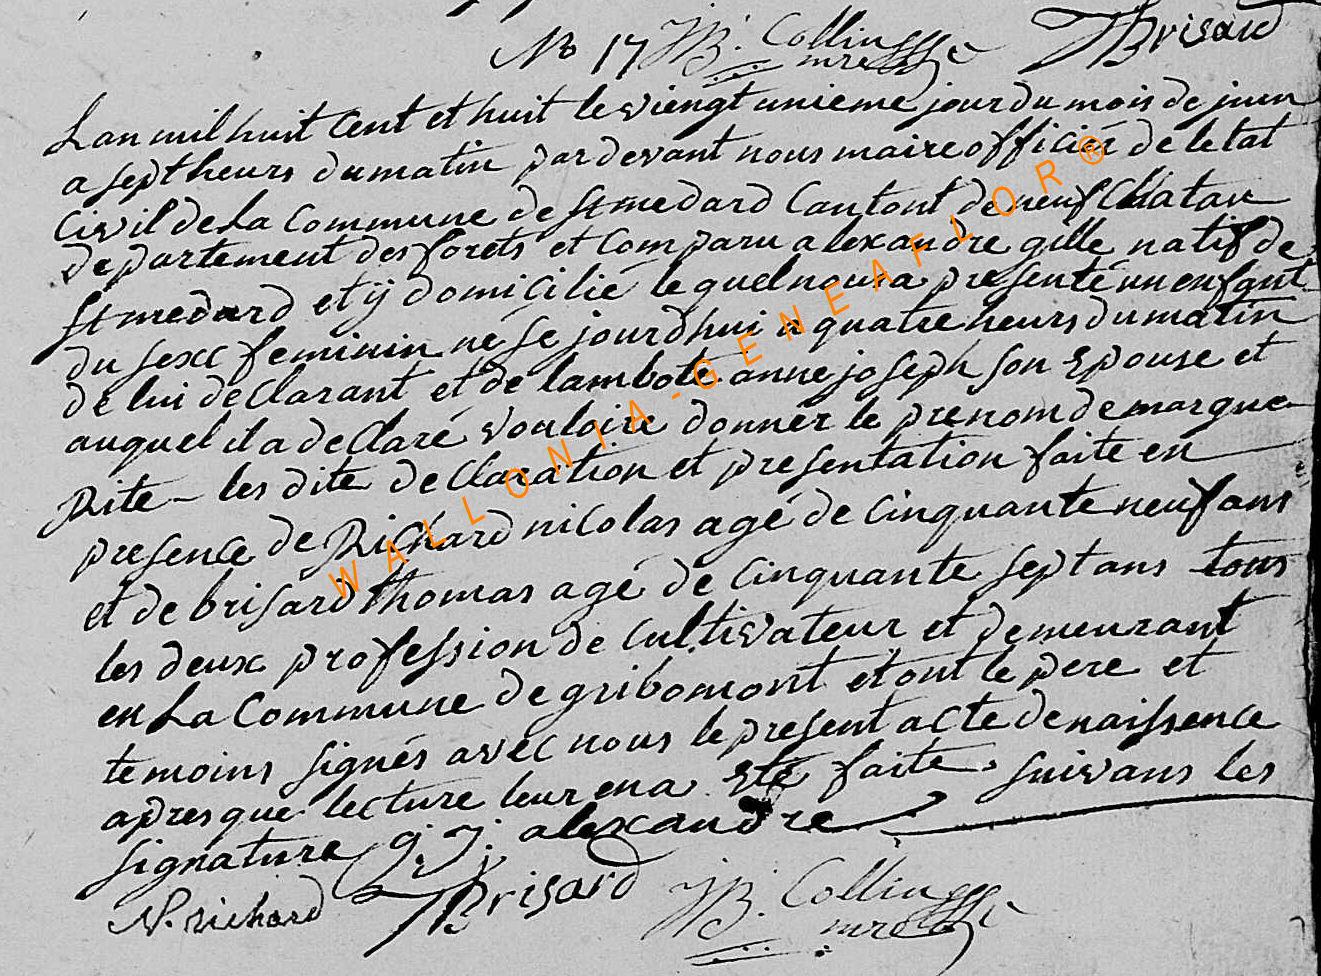 No 17 JB. Collin mre TBrisard
Lan mil huit Cent et huit le viengt unieme jour du mois de juin
a sept heurs du matin par devant nous maire officier de letat
Civil de La Commune de St medard Cantont de neufChatau
departement des forets et Comparu alexandre gille natif de
St medard et ÿ domicilié le quel nous a presenté un enfant
du sexe feminin né se jourdhui a quatre heurs du matin
de lui declarant et de lambote anne joseph son Epouse et
auquel il a declaré vouloire donner le prenom de margue
Rite – les dite declaration et presentation faite en
presence de Richard nicolas agé de cinquante neuf ans
et de brisard thomas agé de cinquante sept ans tous
les deux profession de cultivateur et demeurant
en La Commune de gribomont et ont le pere et
temoins signés avec nous le present acte de naissence
apres que lecture leur en a Eté faite suivans les
signature g. j. alexandre
N. richard TBrisard JB. Collin
mre
WALLONIA-GENEAFLOR®